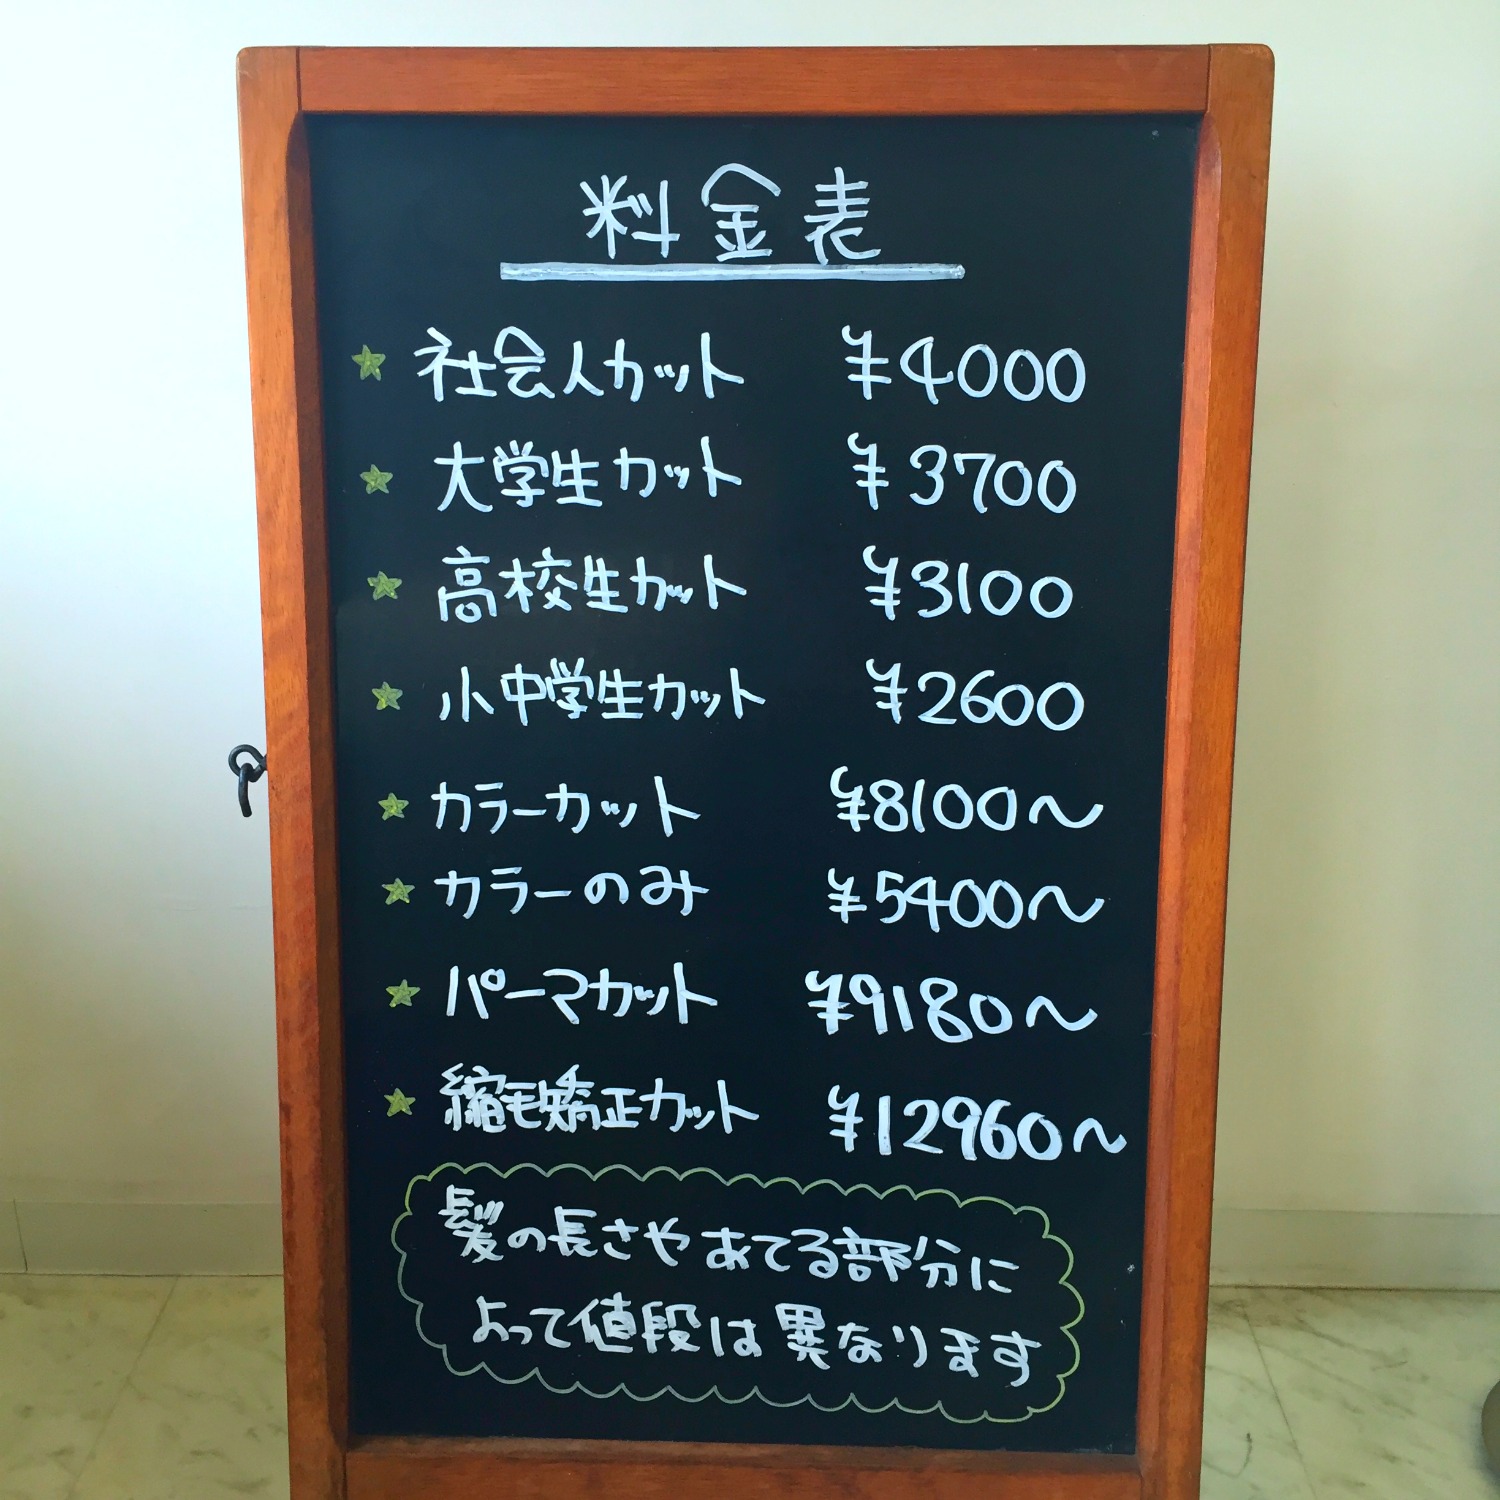 料金表
社会人カット ¥4000
大学生カット ¥3700
高校生カット ¥3100
小中学生カット ¥2600
カラーカット ¥8100〜
カラーのみ ¥5400〜
パーマカット ¥9180〜
縮毛矯正カット ¥12960〜
髪の長さやあてる部分に
よって値段は異なります